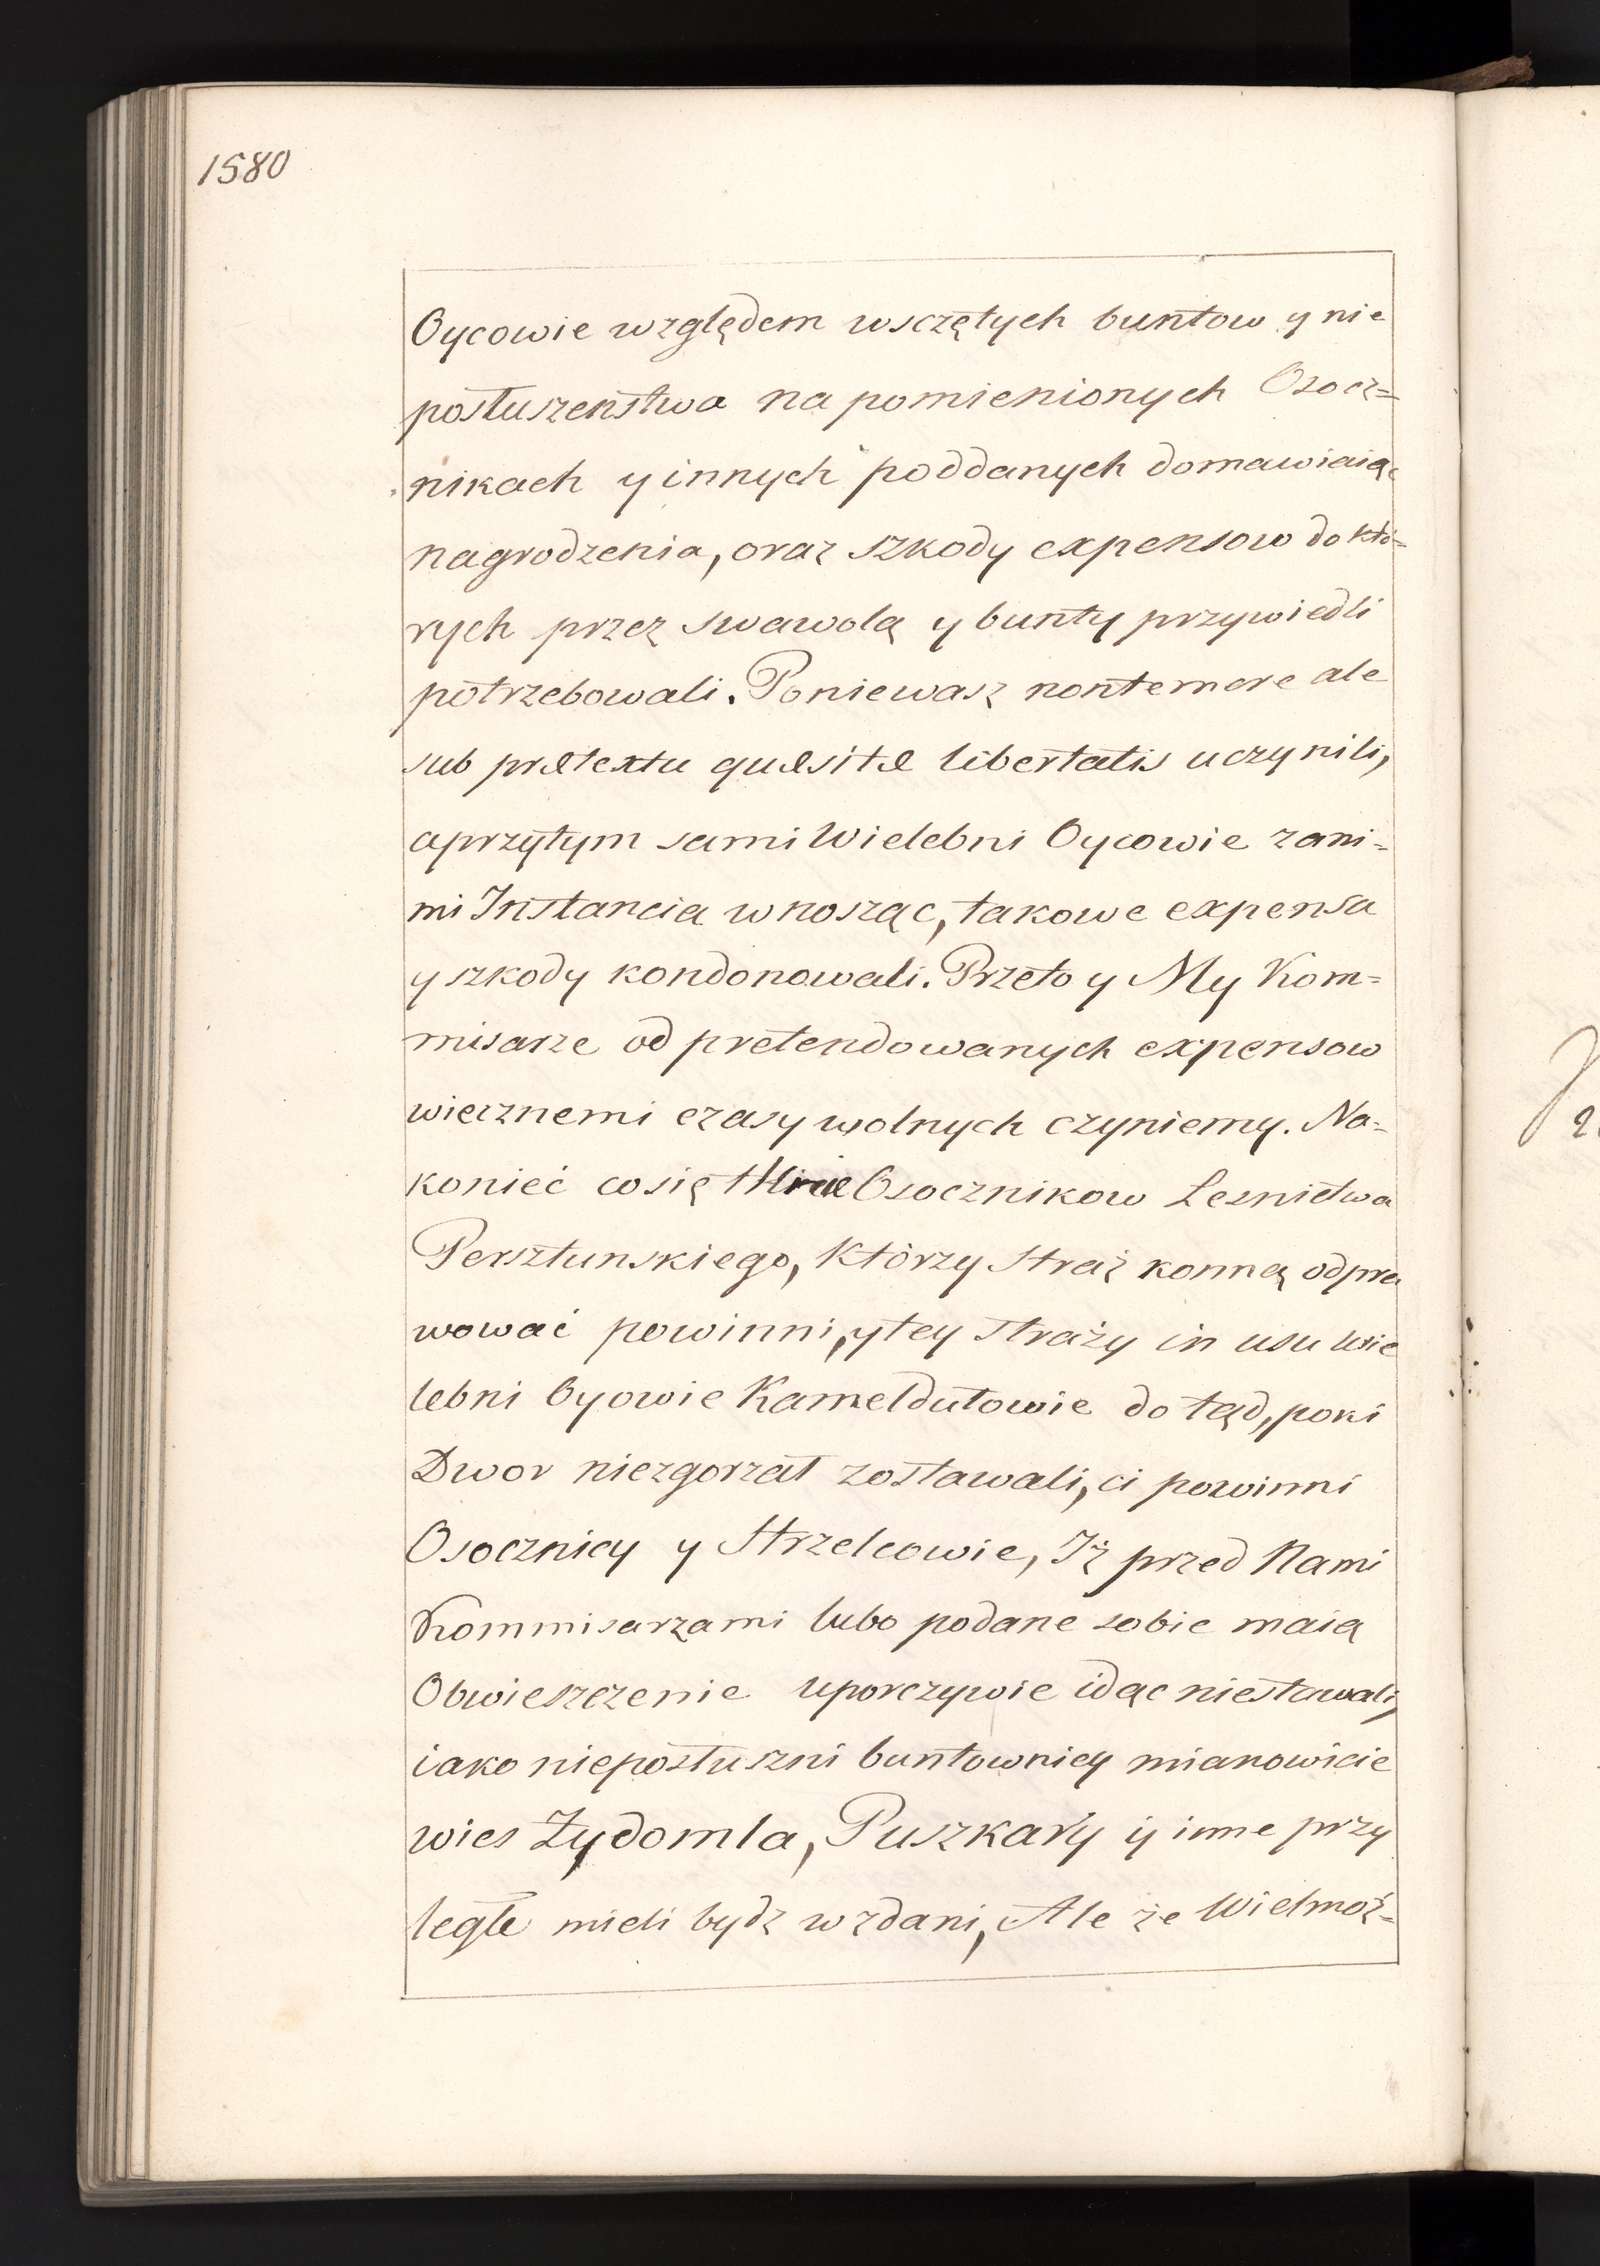 1580
Oycowie względem wsczętych buntow y nie
posłuszeństwa na pomienionych Osocz=
nikach y innych poddanych domawiaiąc
nagrodzenia, oraz szkody expensow do któ=
rych przez swawolą y bunty przywiedli
potrzebowali. Poniewasz nontemere ale
sub prætextu quæsitæ libertatis uczynili,
aprzytym sami Wielebni Oycowie zani=
mi Instancia wnosząc, takowe expensa
y szkody kondonowali. Przeto y My Kom=
misarze od pretendowanych expensow
wiecznemi czasy wolnych czyniemy. Na=
konieć cosię Osocznikow Lesnictwa
Persztunskiego, Którzy Straż konną odpra
wować powinni, ytey Straży in usu Wie
lebni Oyowie Kameldułowie do tąd, poki
Dwor niezgorzał zostawali, ci powinni
Osocznicy y Strzelcowie, Iż przed Nami
Kommisarzami lubo podane sobie maią
Obwieszczenie uporczywie idąc niestawali,
iako nieposłuszni buntownicy mianowicie
wies Żydomla, Puszkary ÿ inne przy
ległe mieli bydz wzdani, Ale że Wielmoż=